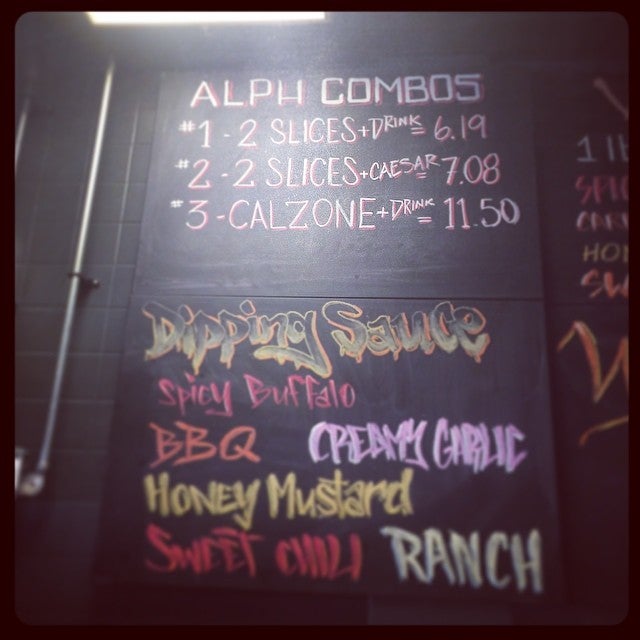 ALPH COMBOS
#1 - 2 SLICES + DRINK = 6.19
#2 - 2 SLICES + CAESAR = 7.08
#3 - CALZONE + DRINK = 11.50
Dipping Sauce
Spicy Buffalo
BBQ CREAMY GARLIC
HONEY MUStard
SWEET CHILI RANCH